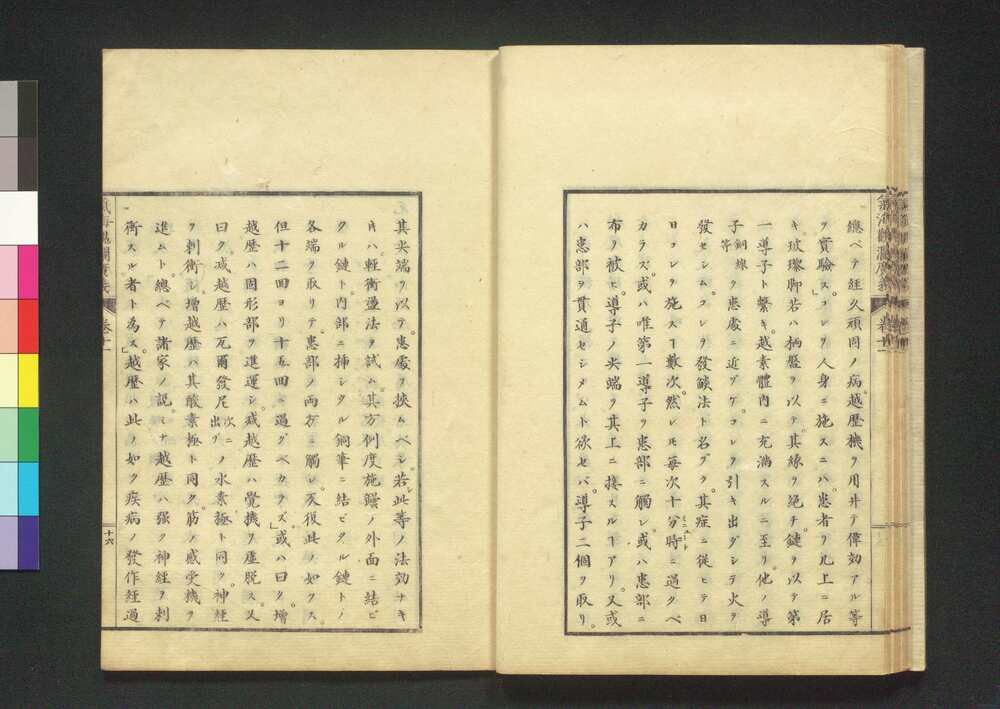 總ベテ經久頑固ノ病。越歴機ヲ用井テ偉効アル等
ヲ實驗ス」コレヲ人身ニ施スニハ。患者ヲ几上ニ居
キ。玻瓈脚若ハ栖瀝ヲ以テ。其縁ヲ絶チ。鏈ヲ以テ第
一導子ト繋ギ。越素體内ニ充満スルニ至リ。他ノ導
子銅線等ヲ患處ニ近ヅケ。コレヲ引キ出ダシテ火ヲ
發セシム。コレヲ發燄法ト名ヅク。其症ニ從ヒテ日
日コレヲ施スヿ數次。然レモ每次十分時ミニュートニ過クベ
カラズ。或ハ唯第一導子ヲ患部ニ觸レ。或ハ患部ニ
布ヲ被ヒ。導子ノ尖端ヲ其上ニ接スルヿアリ。又或
ハ患部ヲ貫通セシメムト欲セバ。導子二個ヲ取リ。
卷十一
其尖端ヲ以テ。患處ヲ挾ムベシ。若シ此等ノ法効ナキ
キハ。軽衝盪法ヲ試ム。其方例度施罎ノ外面ニ結ビ
タル鏈ト。内部ニ挿シタル銅筆ニ結ビタル鏈トノ
各端ヲ取リテ。患部ノ兩方ニ觸レ。反復此ノ如クス。
但十二回ヨリ十五回ニ過グベカラズ」或ハ曰ク。增
越歴ハ固形部ヲ進運シ。减越歴ハ覺機ヲ虛脱ス。又
曰ク。减越歴ハ瓦爾發尼次ニ出ヅノ水素極ト同ク。神經
ヲ刺衝シ。增越歴ハ其酸素極ト同ク。筋ノ感受機ヲ
進ムト。總ベテ諸家ノ説。ミナ越歴ハ强ク神經ヲ刺
衝スル者ト為ス」越歴ハ此ノ如ク疾病ノ發作經過
卷十一
十六